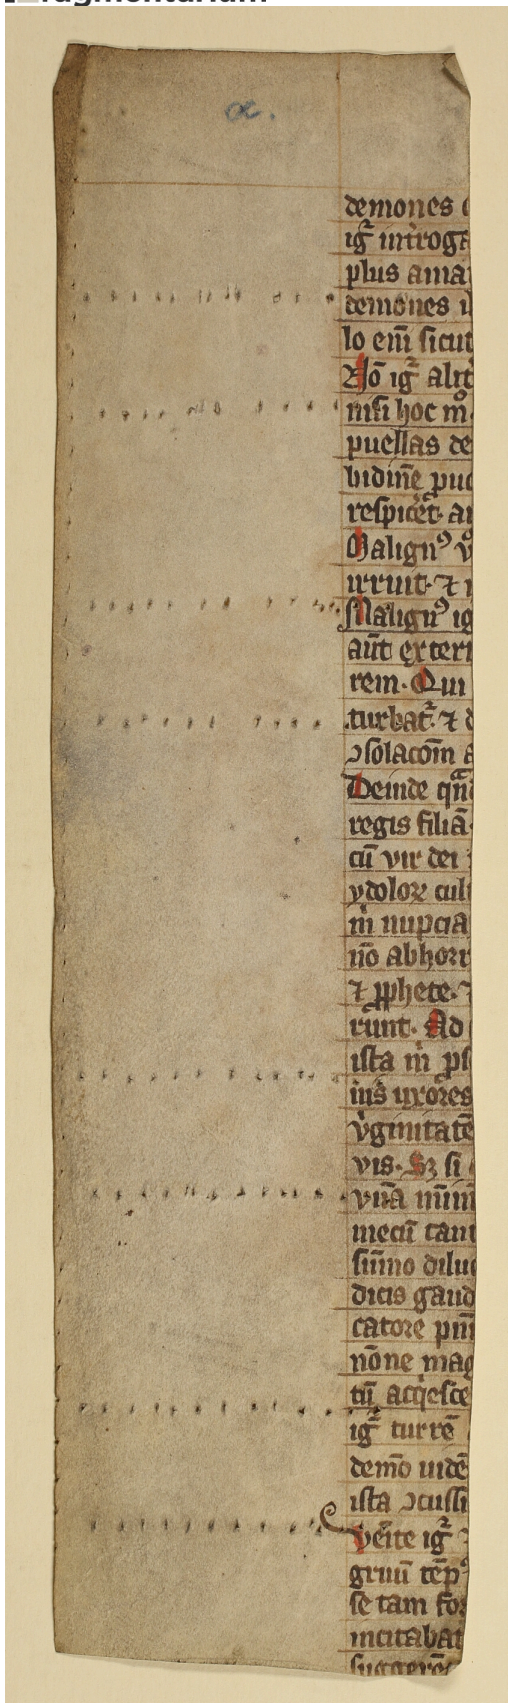 fragmentarium
α.
demones
ig̃ int̃roga
plus ama
demones
lo em̃ sicut
Nō ig̃ alit
nisi hoc mͦ
puellas de
bidinē pu
respic̃et. a
Malignꝰ vͦ
irruit. ⁊
Malignꝰ ig
aūt exteri
rem. Qui
turbat᷑. ⁊
ↄsolacōm a
Deinde qn̄
regis filiā
cū vir dei
ydoloꝝ cul
in nupcia
nō abhorr
⁊ ꝓphete.
rūnt. Ad
ista in ps
ius uxores
v̓ginitatē
vis. Sꝫ si
vnā
mecū tam
sūmo dilu
dicis gaud
catore
nōne mag
tū acq̇esce
ig̃ turrē
demō uidē
ista ↄcussi
veīte ig̃
gruū tēpꝰ
se tam for
incitabat
suggerē